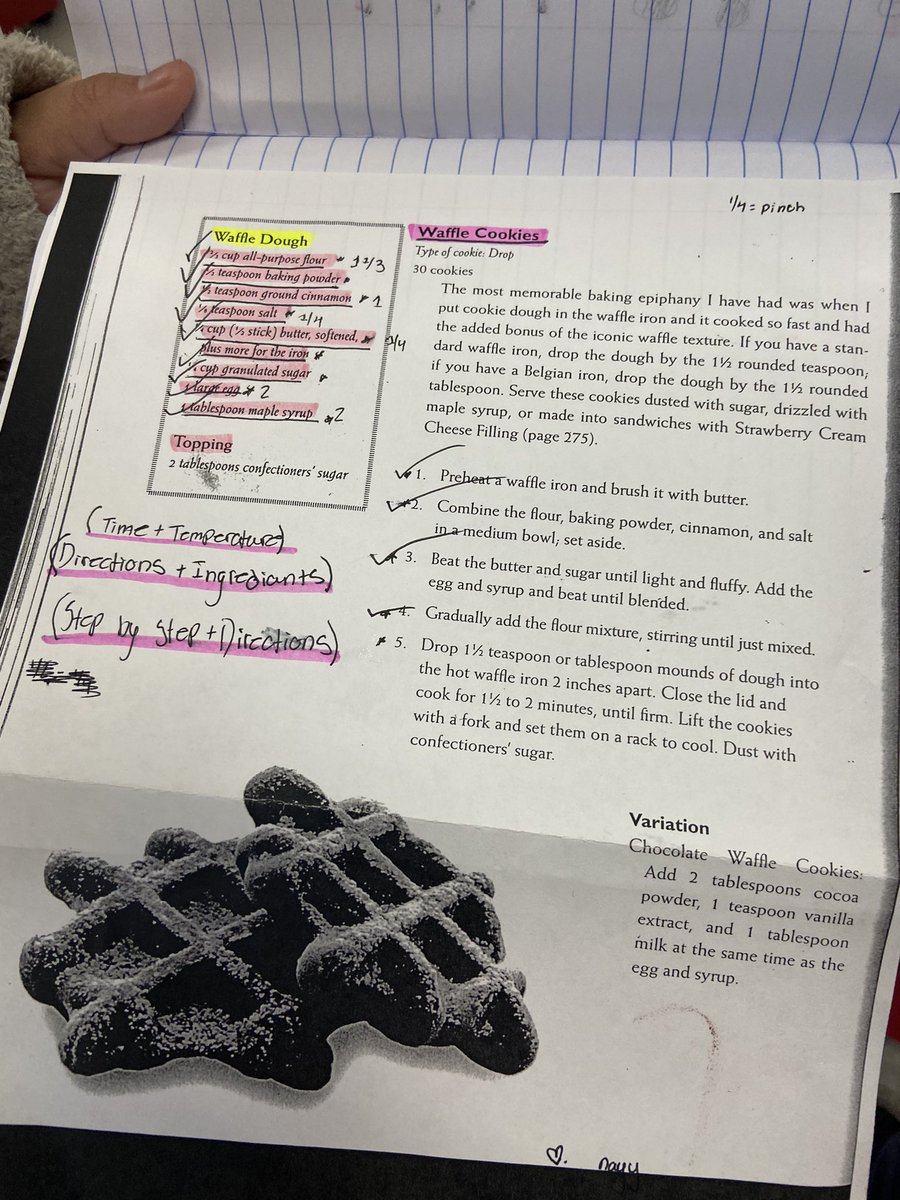 1/4 = pinch
Waffle Dough
cup all-purpose flour 1 2/3
teaspoon baking powder
teaspoon ground cinnamon 1
teaspoon salt 1/4
cup (⅓ stick) butter, softened, 3/4
plus more for the iron
cup granulated sugar
large egg 2
1 tablespoon maple syrup 2
Topping
2 tablespoons confectioners' sugar
(Time + Temperature)
(Directions + Ingrediants)
(Step by Step + Directions)
Waffle Cookies
Type of cookie: Drop
30 cookies
The most memorable baking epiphany I have had was when I
put cookie dough in the waffle iron and it cooked so fast and had
the added bonus of the iconic waffle texture. If you have a stan-
dard waffle iron, drop the dough by the 1½ rounded teaspoon;
if you have a Belgian iron, drop the dough by the 1½ rounded
tablespoon. Serve these cookies dusted with sugar, drizzled with
maple syrup, or made into sandwiches with Strawberry Cream
Cheese Filling (page 275).
1. Preheat a waffle iron and brush it with butter.
2. Combine the flour, baking powder, cinnamon, and salt
in a medium bowl; set aside.
3. Beat the butter and sugar until light and fluffy. Add the
egg and syrup and beat until blended.
4. Gradually add the flour mixture, stirring until just mixed.
5. Drop 1½ teaspoon or tablespoon mounds of dough into
the hot waffle iron 2 inches apart. Close the lid and
cook for 1½ to 2 minutes, until firm. Lift the cookies
with a fork and set them on a rack to cool. Dust with
confectioners' sugar.
Variation
Chocolate Waffle Cookies:
Add 2 tablespoons cocoa
powder, 1 teaspoon vanilla
extract, and 1 tablespoon
milk at the same time as the
egg and syrup.